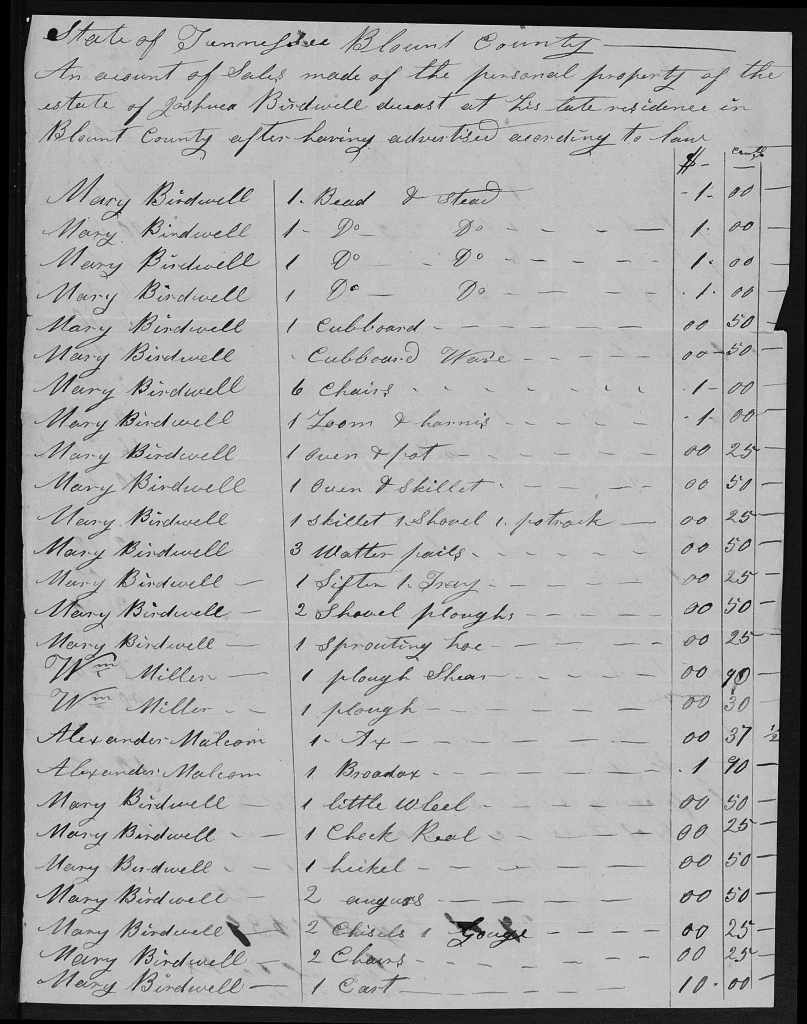 State of Tennessee Blount County
An acount of Sales made of the personal property of the
estate of Joshua Birdwell deceast at his late residence in
Blount County after having advertised acording to law
$ Cents
Mary Birdwell 1. Bead & Stead - 1 - 00
Mary Birdwell 1 - Do - Do - - - 1. 00
Mary Birdwell 1 Do - - Do - - - 1. 00
Mary Birdwell 1 Do - Do - - - . 1. 00
Mary Birdwell 1 Cubboard - - - 00 50
Mary Birdwell - Cubboard Ware - - - 00 - 50
Mary Birdwell 6 Chairs - - - . 1 - 00
Mary Birdwell 1 Loom & harnis - - - - 1 - 00
Mary Birdwell 1 oven & pot - - - 00 25
Mary Birdwell 1 Oven & Skillet - - - 00 50
Mary Birdwell 1 Skillet 1 Shovel 1. potrack - 00 25
Mary Birdwell 3 Watter pails - - - 00 50
Mary Birdwell - 1 Sifter 1. Tray - - - 00 25
Mary Birdwell - 2 Shovel ploughs - - - 00 50
Mary Birdwell - 1 Sprouting hoe - - - 00 25
Wm Miller - 1 plough Shear - - - 00 90
Wm Miller - - 1 plough - - - 00 30
Alexander Malcom 1 - Ax - - - 00 37 1/2
Alexander Malcom 1 Broadax - - - . 1 90
Mary Birdwell - 1 little Wheel - - - 00 50
Mary Birdwell - - 1 Check Real - - - 00 25
Mary Birdwell - - 1 hickel - - - 00 50
Mary Birdwell - 2 augurs - - - 00 50
Mary Birdwell - 2 Chisels 1 Gouge - - - 00 25
Mary Birdwell - 2 Chairs - - - 00 25
Mary Birdwell - 1 Cart - - - 10 . 00